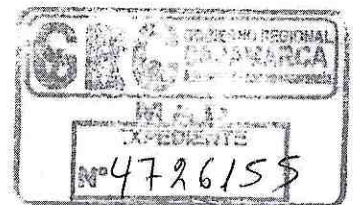 GRC GOBIERNO REGIONAL
CAJAMARCA
M.A.D
EXPEDIENTE
Nº 4726155